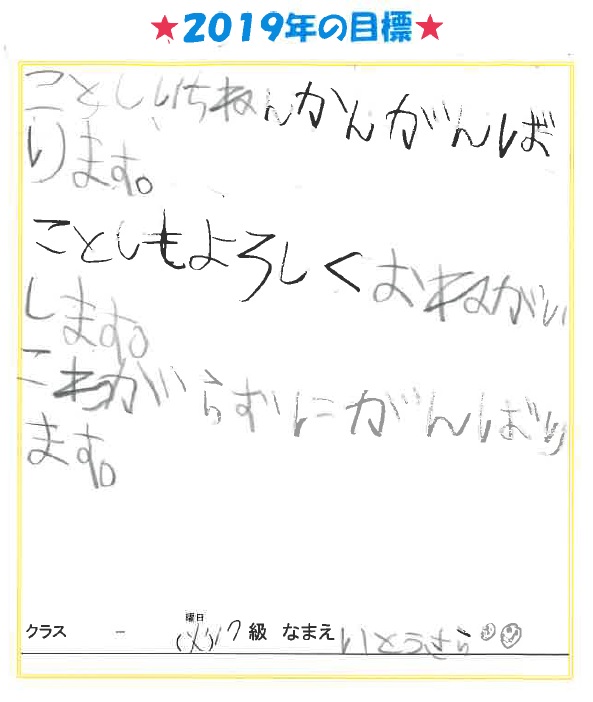 ★2019年の目標★
ことしいちねんかんがんば
ります。
ことしもよろしくおねがい
します。
こわがらずにがんばり
ます。
曜日
クラス - (火)17級 なまえ いとうさら